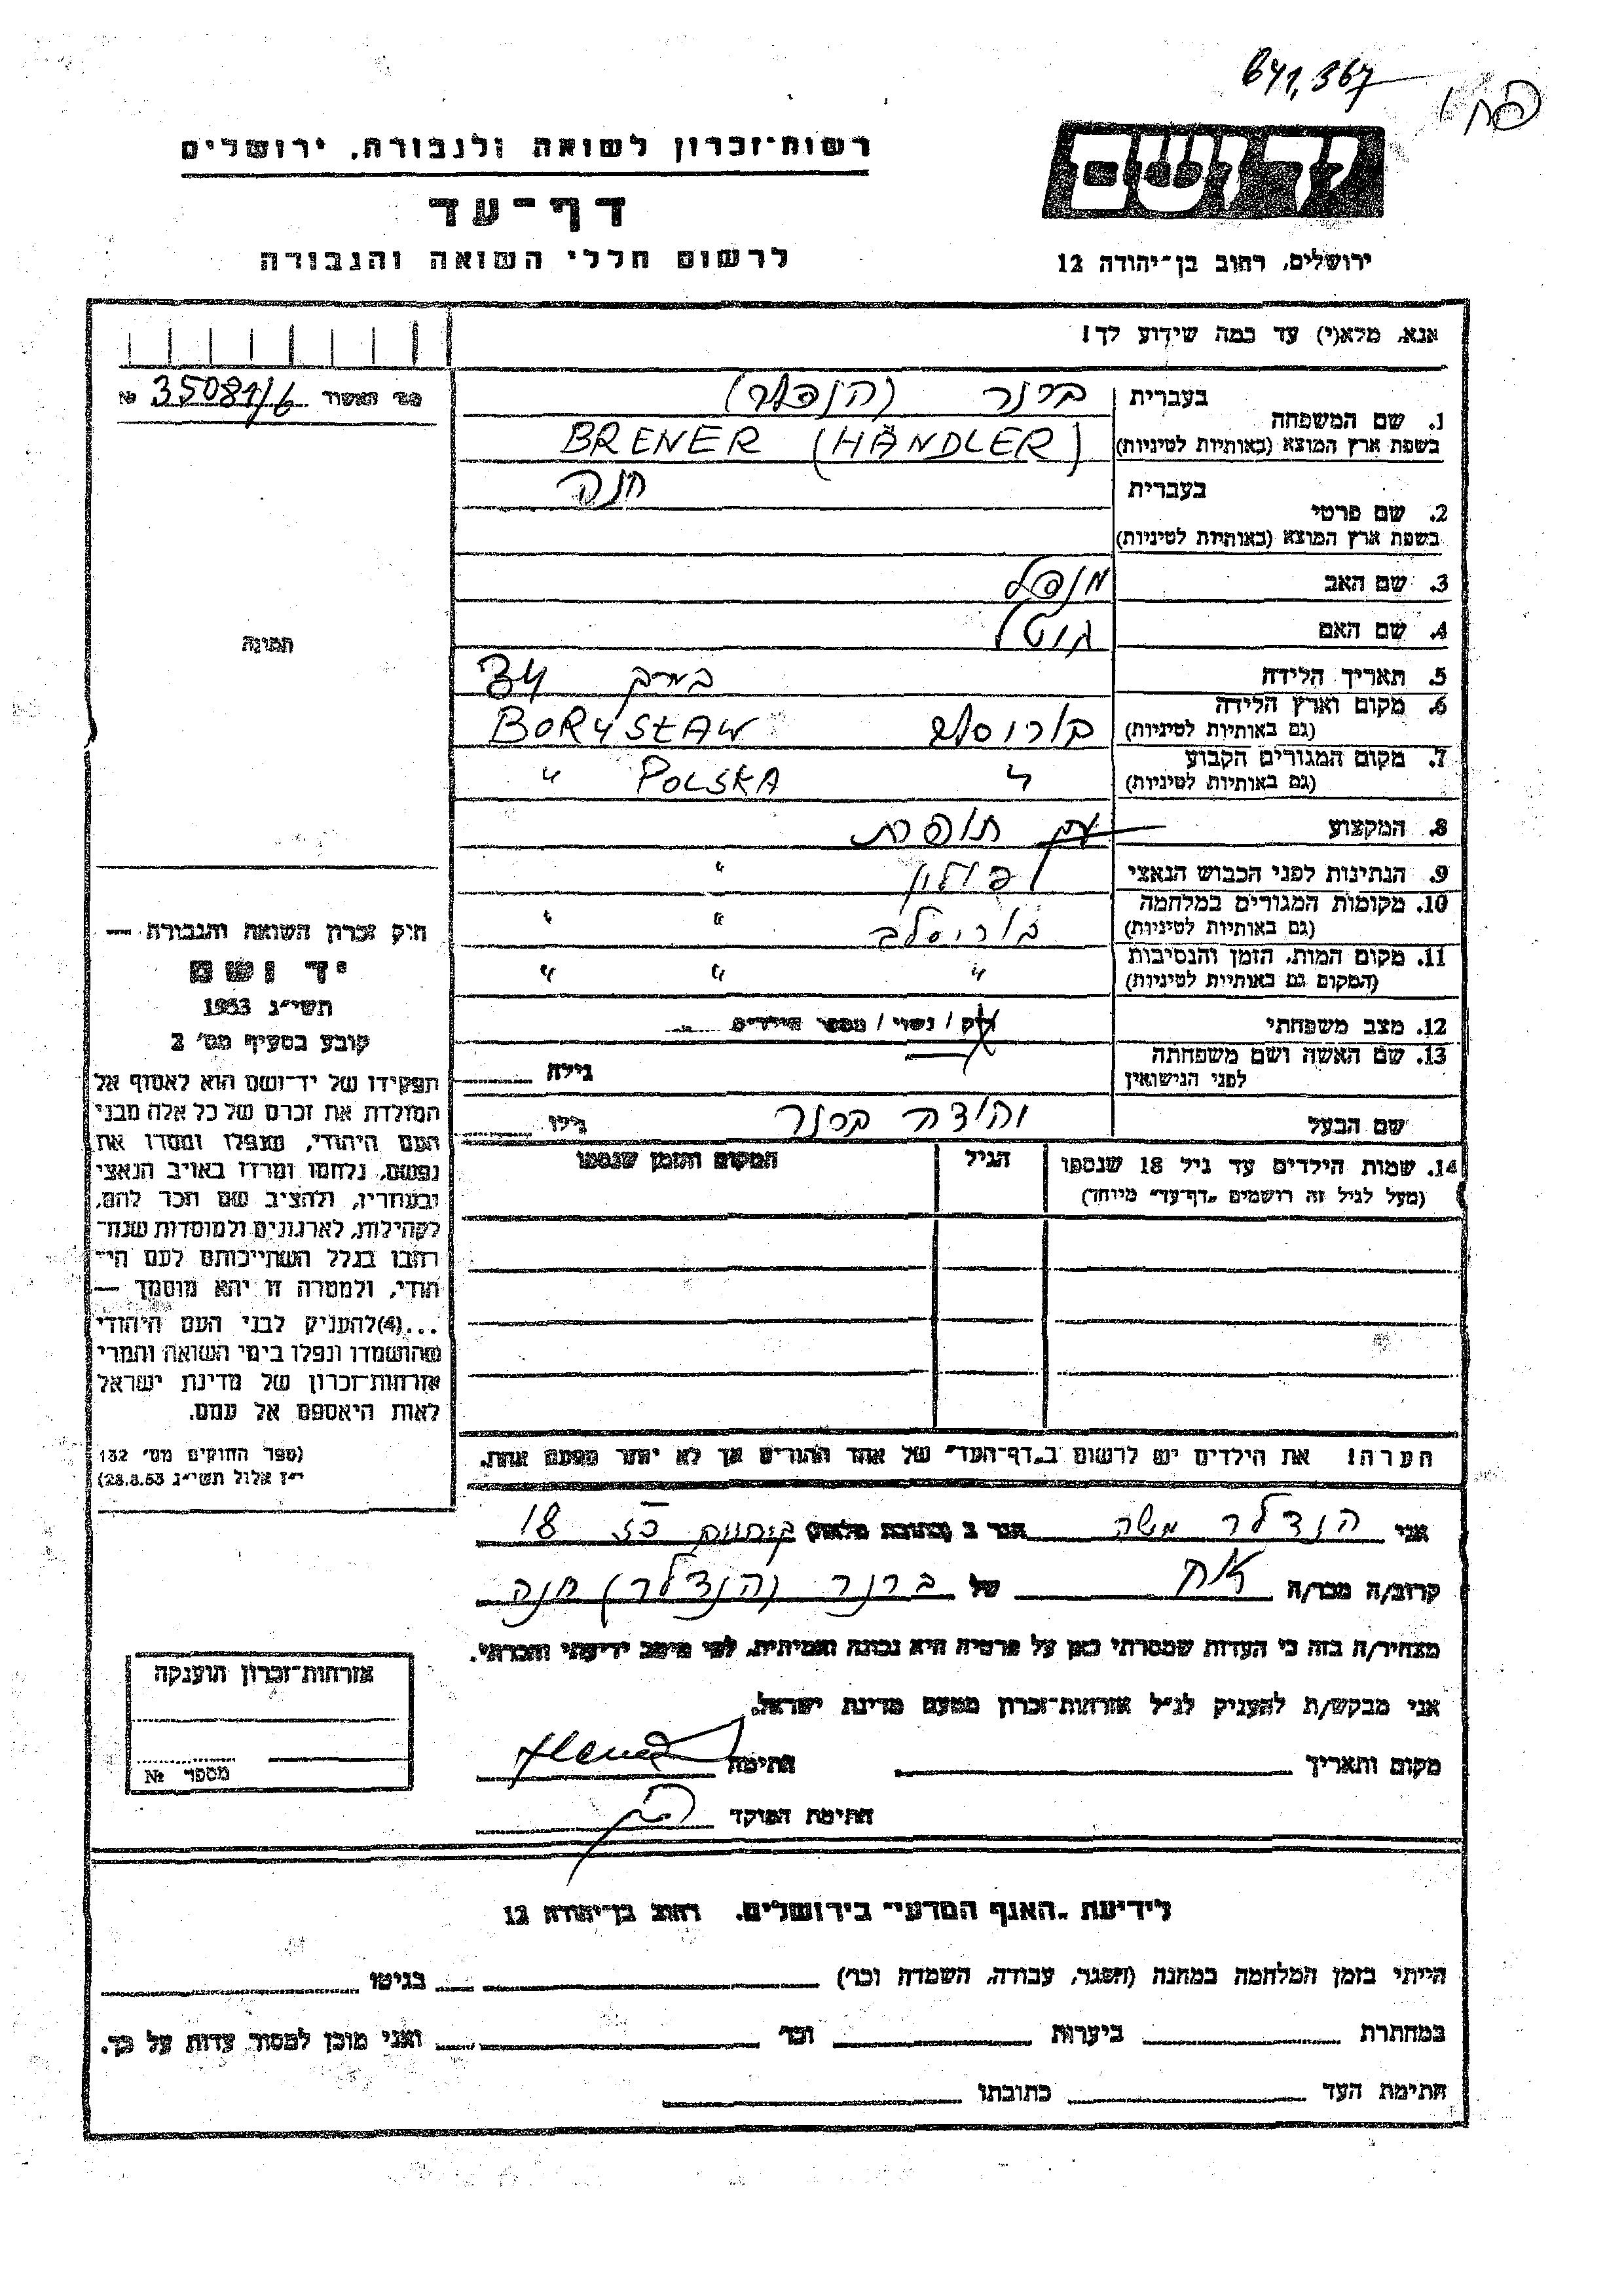 641,367
יד ושם
רשות־זכרון לשואה ולגבורה, ירושלים
דף־עד
לרשום חללי השואה והגבורה
ירושלים, רחוב בן־יהודה 12
אנא, מלא(י) עד כמה שידוע לך!
№ 35081/6
1. שם המשפחה
בעברית ברנר (הנדלר)
בשפת ארץ המוצא (באותיות לטיניות) BRENER (HÄNDLER)
2. שם פרטי
בעברית חנה
בשפת ארץ המוצא (באותיות לטיניות)
3. שם האב מנדל
4. שם האם גוטל
תמונה
5. תאריך הלידה בערך 34
6. מקום וארץ הלידה
(גם באותיות לטיניות) בוריסלב BORYSŁAW
7. מקום המגורים הקבוע
(גם באותיות לטיניות) " POLSKA "
8. המקצוע תופרת
9. הנתינות לפני הכבוש הנאצי פולין "
10. מקומות המגורים במלחמה
(גם באותיות לטיניות) בוריסלב " "
11. מקום המות, הזמן והנסיבות
(המקום גם באותיות לטיניות) " " "
12. מצב משפחתי רוק / נשוי / מספר הילדים
13. שם האשה ושם משפחתה
לפני הנישואין גילה
שם הבעל יהודה ברנר גילו
14. שמות הילדים עד גיל 18 שנספו הגיל המקום והזמן שנספו
(מעל לגיל זה רושמים "דף־עד" מיוחד)
חוק זכרון השואה והגבורה —
יד ושם
תשי״ג 1953
קובע בסעיף מס׳ 2
תפקידו של יד־ושם הוא לאסוף אל
המולדת את זכרם של כל אלה מבני
העם היהודי, שנפלו ומסרו את
נפשם, נלחמו ומרדו באויב הנאצי
ובעוזריו, ולהציב שם וזכר להם,
לקהילות, לארגונים ולמוסדות שנח־
רבו בגלל השתייכותם לעם הי־
הודי, ולמטרה זו יהא מוסמך —
...(4) להעניק לבני העם היהודי
שהושמדו ונפלו בימי השואה והמרי
אזרחות־זכרון של מדינת ישראל
לאות היאספם אל עמם.
(ספר החוקים מס׳ 132
י״ז אלול תשי״ג 28.8.53)
הערה! את הילדים יש לרשום ב"דף־העד" של אחד ההורים אך לא יותר מפעם אחת.
אני הנדלר משה הגר ב (כתובת מלאה) 18
קרוב/ה מכר/ה אח של ברנר (הנדלר) חנה
מצהיר/ה בזה כי העדות שמסרתי כאן על פרטיה היא נכונה ואמיתית, לפי מיטב ידיעתי והכרתי.
אני מבקש/ת להעניק לנ״ל אזרחות־זכרון מטעם מדינת ישראל.
מקום ותאריך חתימה
חתימת הפוקד
אזרחות־זכרון הוענקה
מספר №
לידיעת "האגף המדעי" בירושלים, רחוב בן־יהודה 12
הייתי בזמן המלחמה במחנה (הסגר, עבודה, השמדה וכו׳) בגיטו
במחתרת ביערות וכו׳ ואני מוכן למסור עדות על כך.
חתימת העד כתובתו